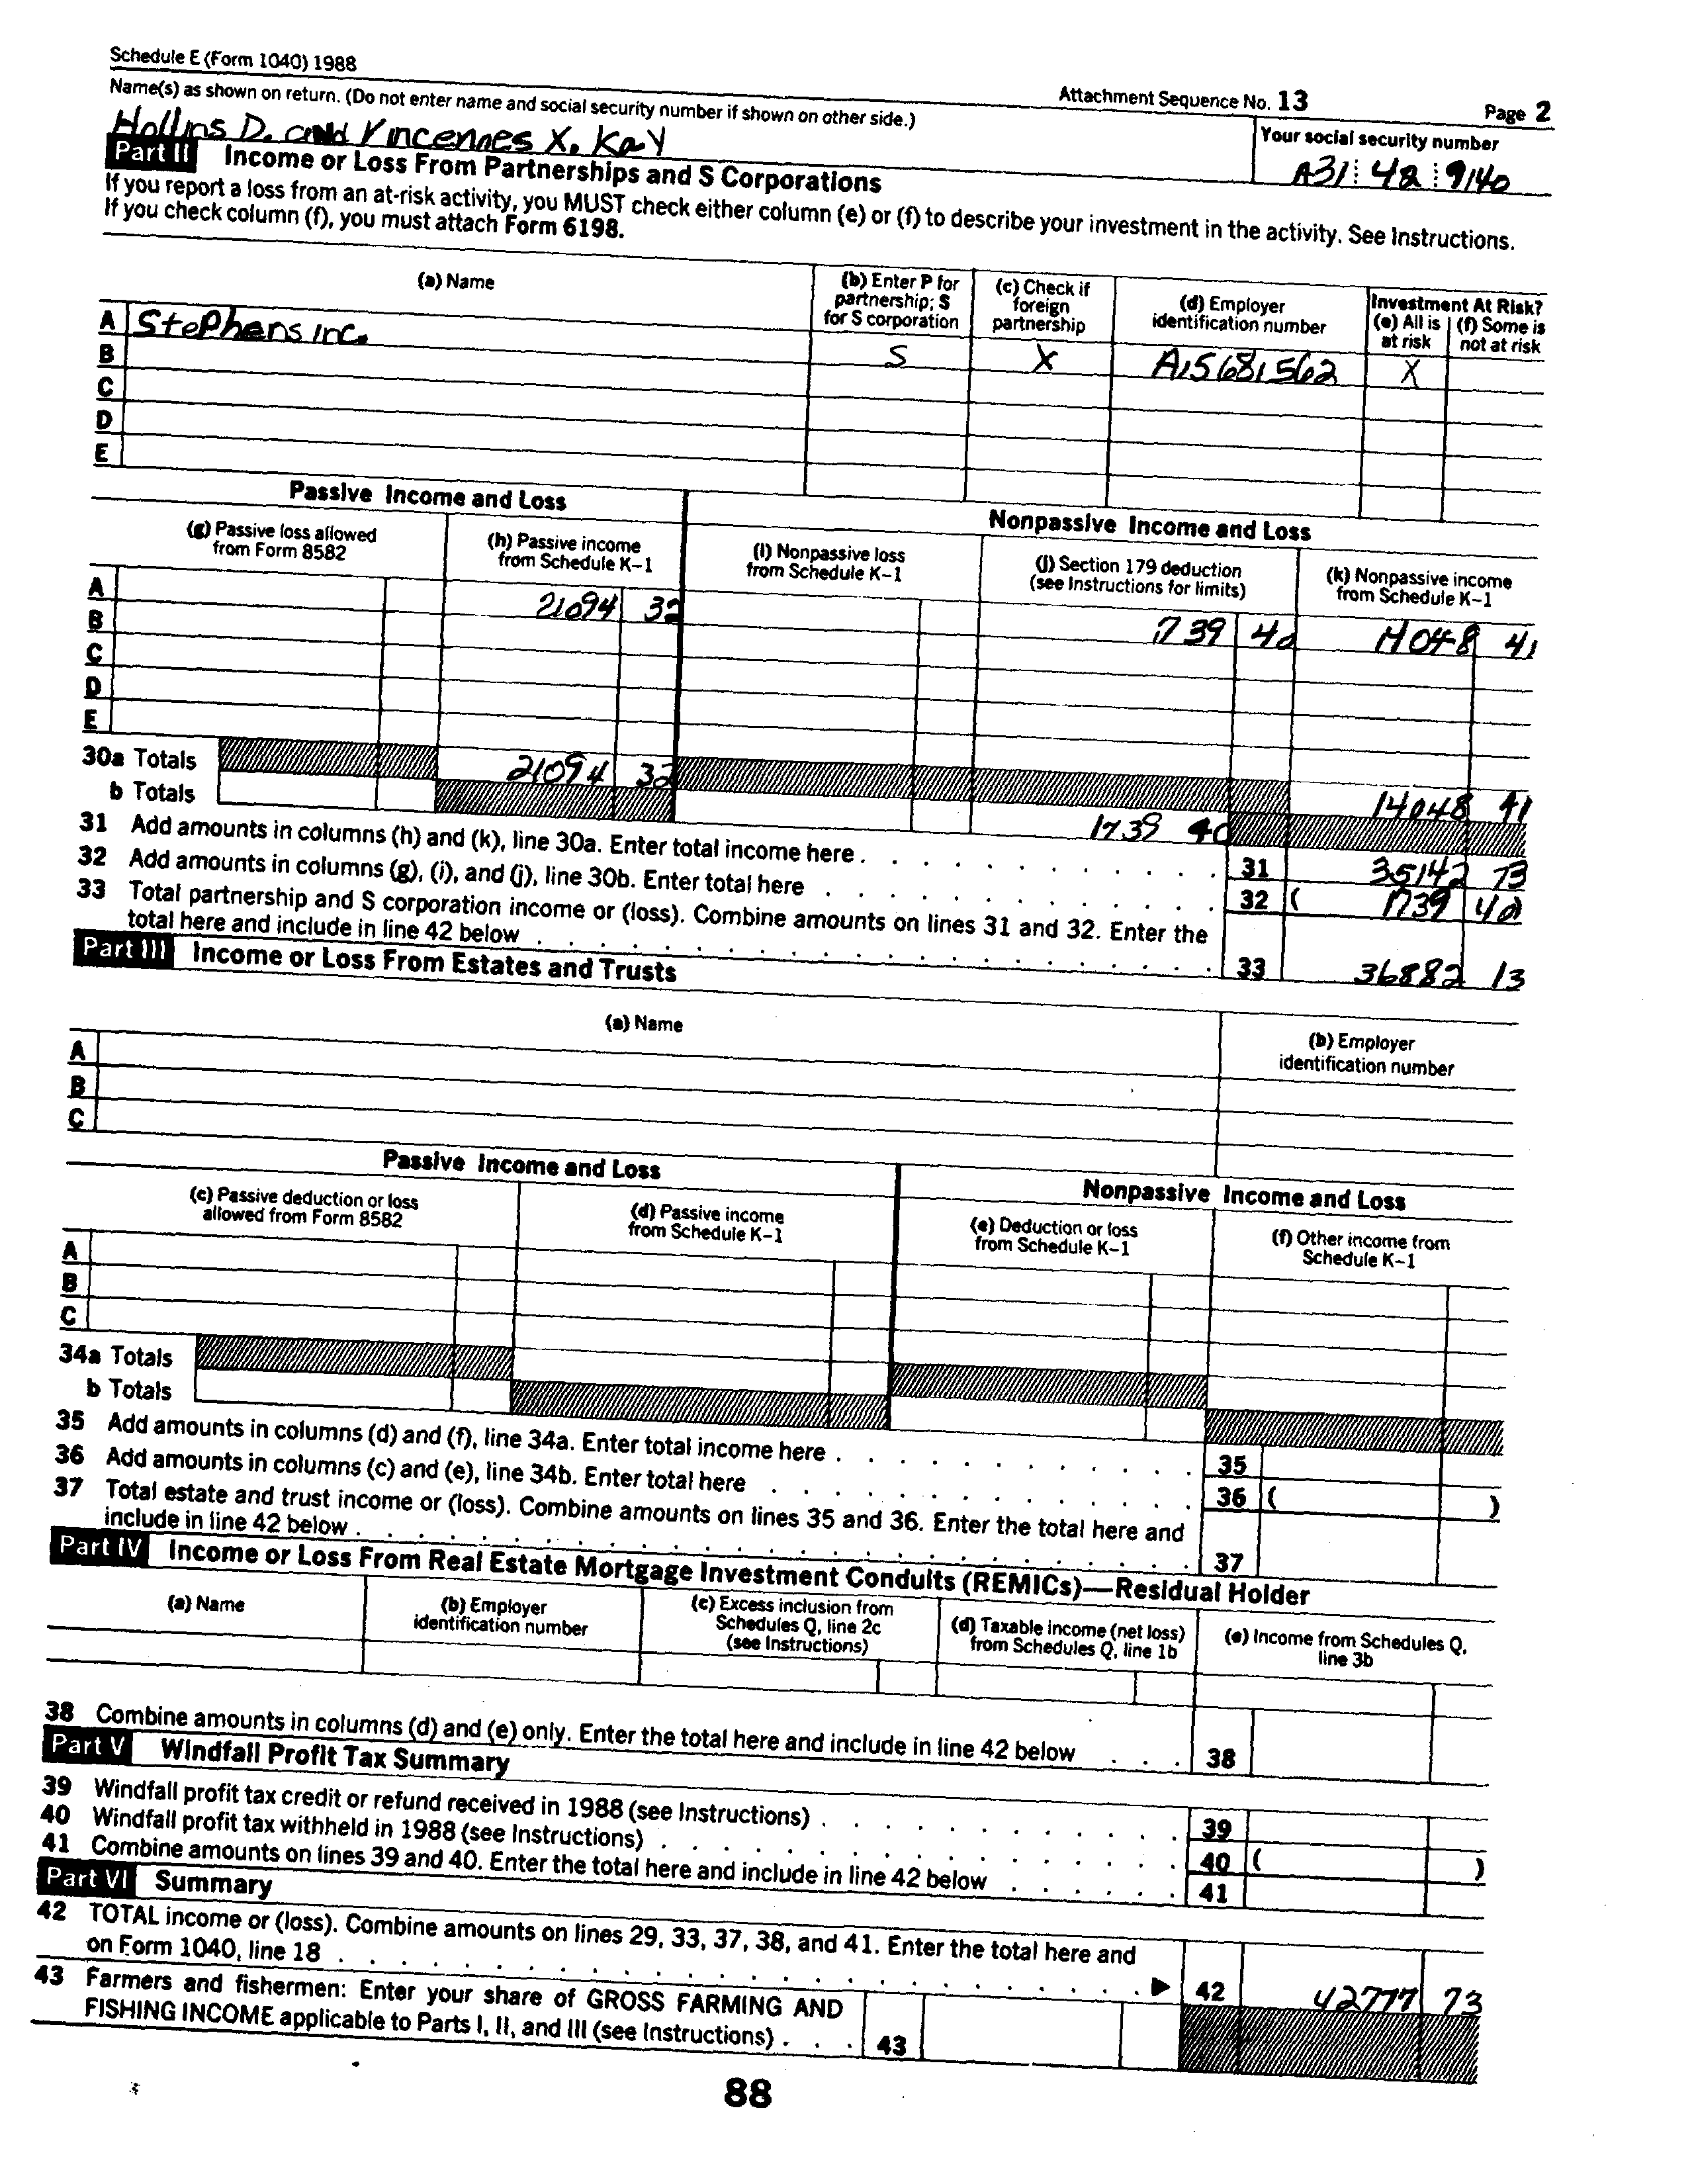 Schedule E (Form 1040) 1988
Attachment Sequence No. 13
Page 2
Name(s) as shown on return. (Do not enter name and social security number if shown on other side.)
Your social security number
Hollins D. and Vincennes X. Kay
A31 42 9140
Part II Income or Loss From Partnerships and S Corporations
If you report a loss from an at-risk activity, you MUST check either column (e) or (f) to describe your investment in the activity. See Instructions.
If you check column (f), you must attach Form 6198.
(a) Name
(b) Enter P for
partnership; S
for S corporation
(c) Check if
foreign
partnership
(d) Employer
identification number
Investment At Risk?
(e) All is
at risk
(f) Some is
not at risk
A Stephens inc. S X A15681562 X
B
C
D
E
Passive Income and Loss
Nonpassive Income and Loss
(g) Passive loss allowed
from Form 8582
(h) Passive income
from Schedule K–1
(i) Nonpassive loss
from Schedule K–1
(j) Section 179 deduction
(see Instructions for limits)
(k) Nonpassive income
from Schedule K–1
A 21094 32 1739 40 14048 41
B
C
D
E
30a Totals 21094 32 14048 41
b Totals 1739 40
31 Add amounts in columns (h) and (k), line 30a. Enter total income here . 31 35142 73
32 Add amounts in columns (g), (i), and (j), line 30b. Enter total here . 32 ( 1739 40 )
33 Total partnership and S corporation income or (loss). Combine amounts on lines 31 and 32. Enter the
total here and include in line 42 below . 33 36882 13
Part III Income or Loss From Estates and Trusts
(a) Name
(b) Employer
identification number
A
B
C
Passive Income and Loss
Nonpassive Income and Loss
(c) Passive deduction or loss
allowed from Form 8582
(d) Passive income
from Schedule K–1
(e) Deduction or loss
from Schedule K–1
(f) Other income from
Schedule K–1
A
B
C
34a Totals
b Totals
35 Add amounts in columns (d) and (f), line 34a. Enter total income here . 35
36 Add amounts in columns (c) and (e), line 34b. Enter total here . 36 ( )
37 Total estate and trust income or (loss). Combine amounts on lines 35 and 36. Enter the total here and
include in line 42 below . 37
Part IV Income or Loss From Real Estate Mortgage Investment Conduits (REMICs)—Residual Holder
(a) Name
(b) Employer
identification number
(c) Excess inclusion from
Schedules Q, line 2c
(see Instructions)
(d) Taxable income (net loss)
from Schedules Q, line 1b
(e) Income from Schedules Q,
line 3b
38 Combine amounts in columns (d) and (e) only. Enter the total here and include in line 42 below . . . 38
Part V Windfall Profit Tax Summary
39 Windfall profit tax credit or refund received in 1988 (see Instructions) . 39
40 Windfall profit tax withheld in 1988 (see Instructions) . 40 ( )
41 Combine amounts on lines 39 and 40. Enter the total here and include in line 42 below . 41
Part VI Summary
42 TOTAL income or (loss). Combine amounts on lines 29, 33, 37, 38, and 41. Enter the total here and
on Form 1040, line 18 . ▶ 42 42777 73
43 Farmers and fishermen: Enter your share of GROSS FARMING AND
FISHING INCOME applicable to Parts I, II, and III (see Instructions) . . . 43
88